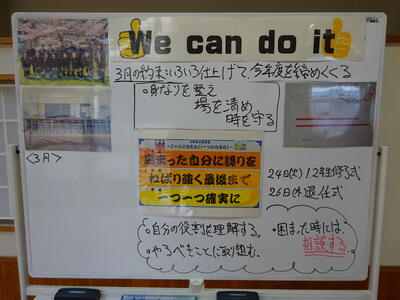 We can do it
3月の約束:いろいろ仕上げて、今年度を締めくくる。
○身なりを整え
場を清め
時を守る
<3月>
決まった自分に誇りを
ねばり強く最後まで
一つ一つ確実に
24日(火)1,2年修了式
26日(木)退任式
○自分の役割を理解する。
○やるべきことに取り組む。
○困まった時には、
相談する。